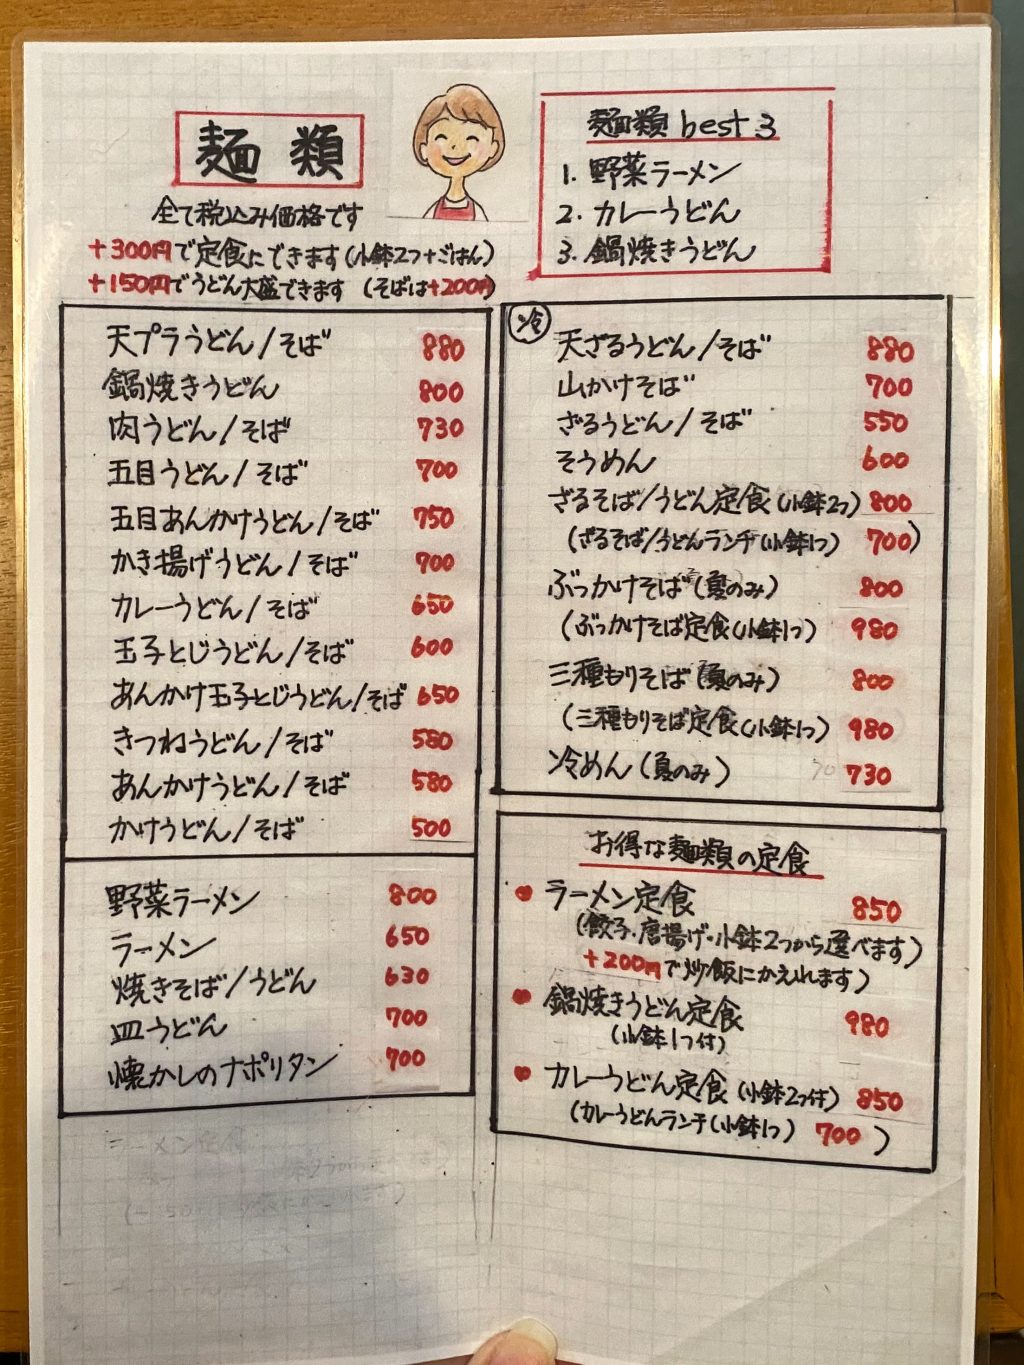 麺類
全て税込み価格です
+300円で定食にできます(小鉢2つ+ごはん)
+150円でうどん大盛できます (そばは+200円)
麺類best3
1. 野菜ラーメン
2. カレーうどん
3. 鍋焼きうどん
天プラうどん/そば 880
鍋焼きうどん 800
肉うどん/そば 730
五目うどん/そば 700
五目あんかけうどん/そば 750
かき揚げうどん/そば 700
カレーうどん/そば 650
玉子とじうどん/そば 600
あんかけ玉子とじうどん/そば 650
きつねうどん/そば 580
あんかけうどん/そば 580
かけうどん/そば 500
野菜ラーメン 800
ラーメン 650
焼きそば/うどん 630
皿うどん 700
懐かしのナポリタン 700
冷
天ざるうどん/そば 880
山かけそば 700
ざるうどん/そば 550
そうめん 600
ざるそば/うどん定食(小鉢2つ) 800
(ざるそば/うどんランチ(小鉢1つ) 700)
ぶっかけそば(夏のみ) 800
(ぶっかけそば定食(小鉢1つ) 980
三種もりそば(夏のみ) 800
(三種もりそば定食(小鉢1つ) 980
冷めん(夏のみ) 730
お得な麺類の定食
● ラーメン定食 850
(餃子・唐揚げ・小鉢2つから選べます)
+200円で炒飯にかえれます)
● 鍋焼きうどん定食 980
(小鉢1つ付)
● カレーうどん定食(小鉢2つ付) 850
(カレーうどんランチ(小鉢1つ) 700)